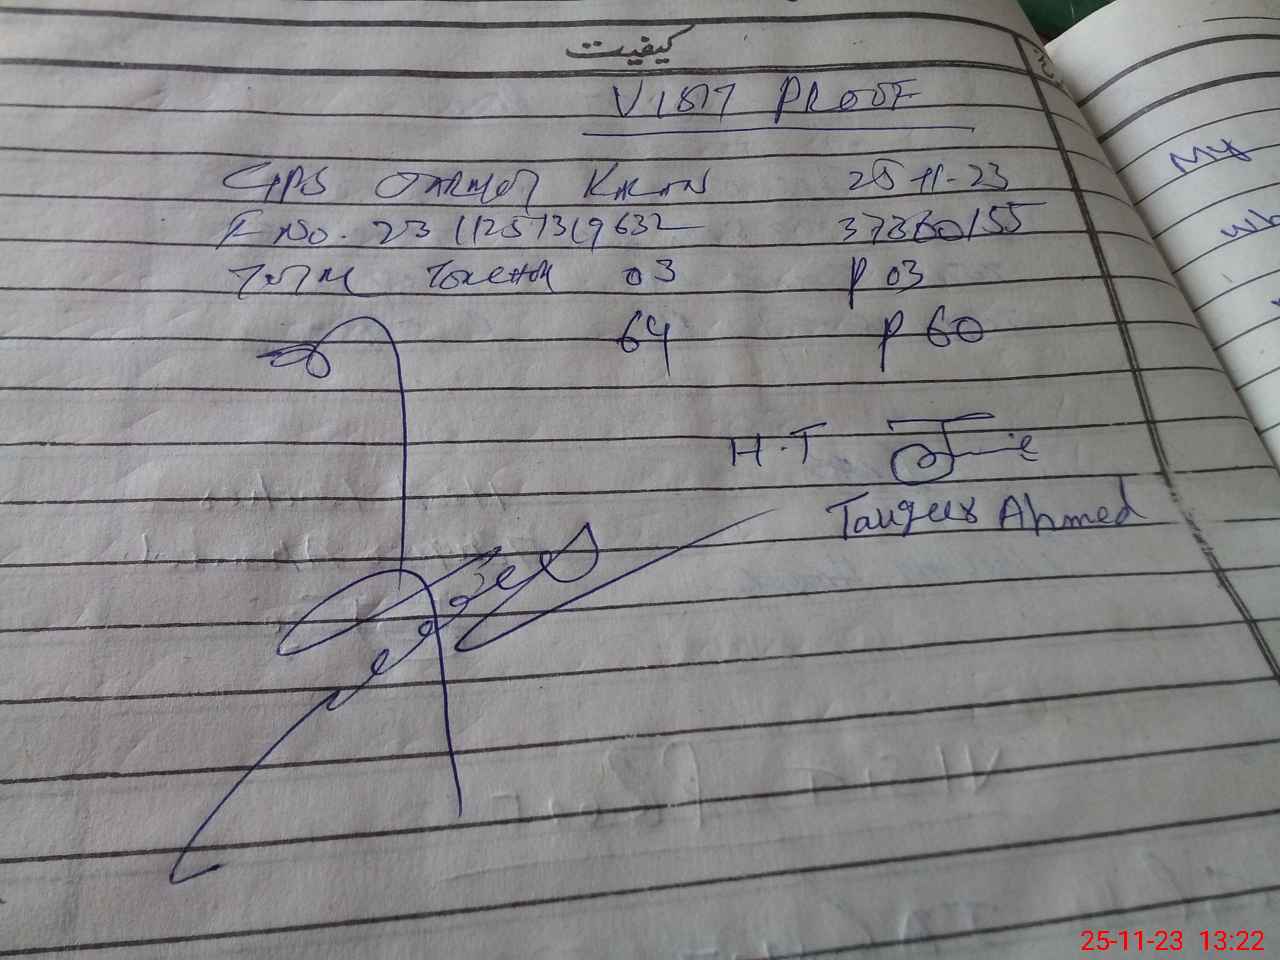 کیفیت
VISIT PROOF
GPS KHAN 25-11-23
F No. 23 11251319632 37360155
TOTAL TEACHER 03 P 03
64 P 60
H.T
Tauqeer Ahmed
My
25-11-23 13:22